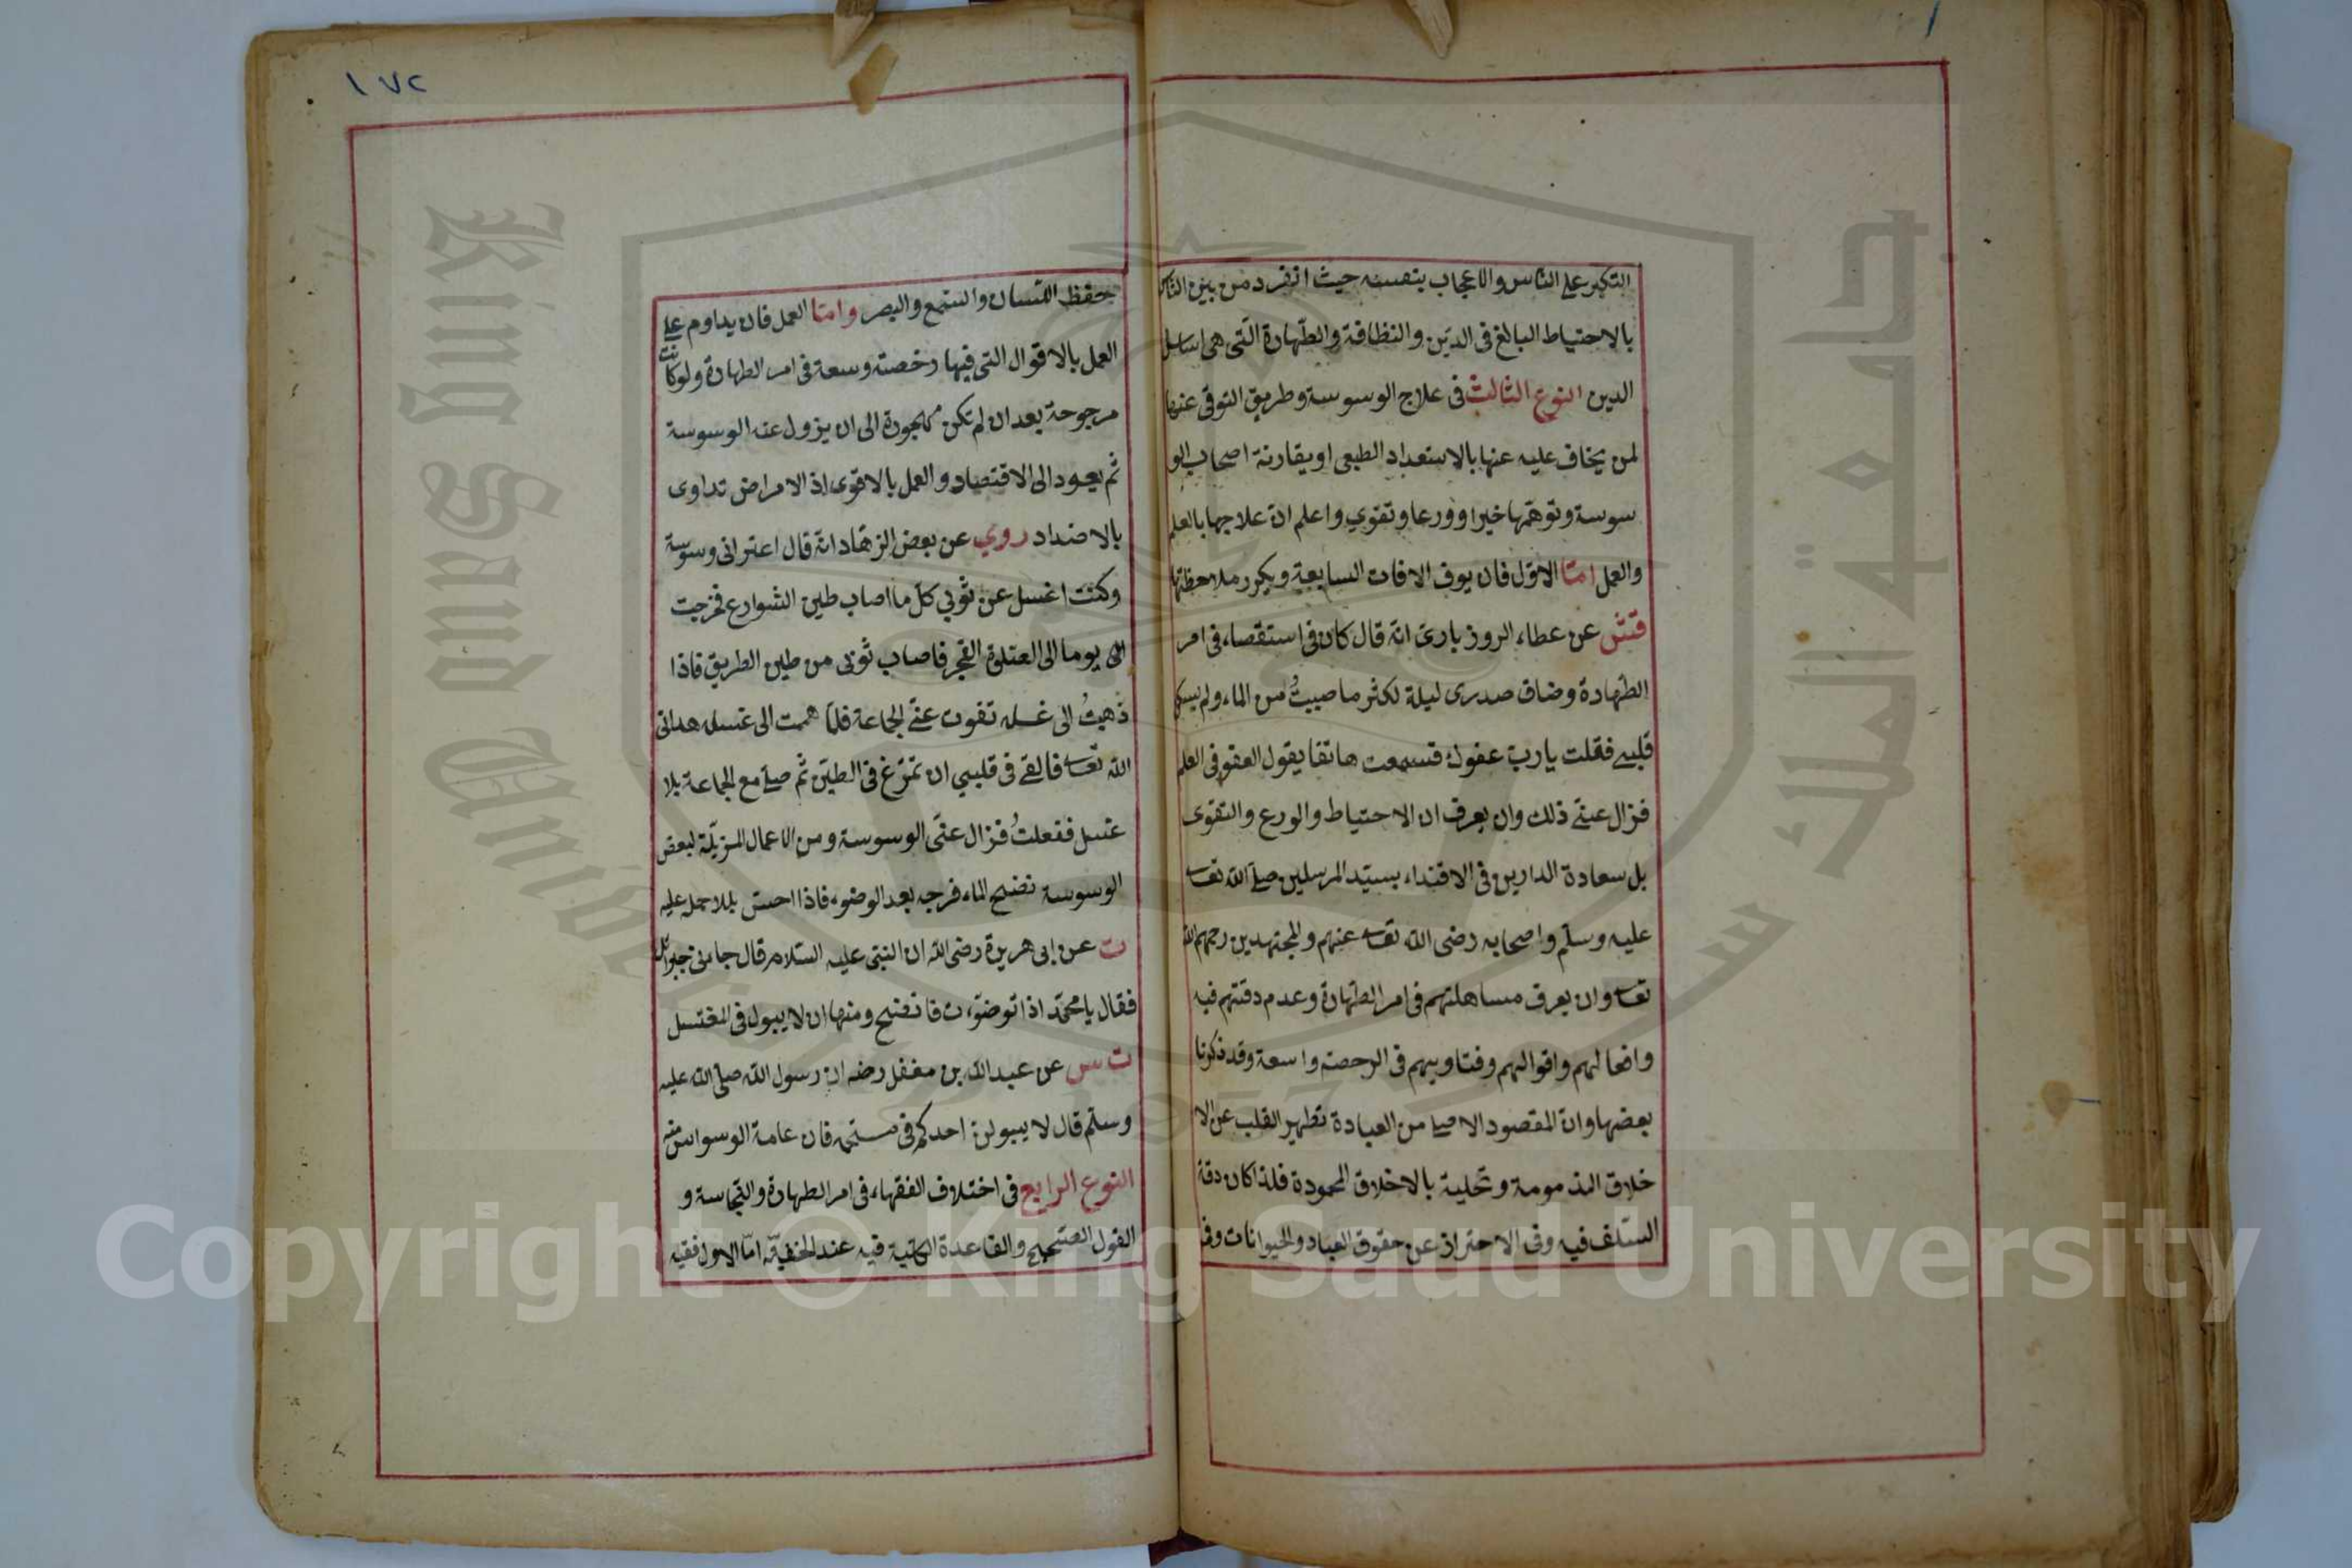 التكبر على الناس والاعجاب بنفسه حيث انفرد من بين الناس
بالاحتياط البالغ فى الدين والنظافة والطهارة التى هى اساس
الدين النوع الثالث فى علاج الوسوسة وطريق التوقى عنها
لمن يخاف عليه عنها بالاستعداد الطبعى او بمقارنة اصحاب الو
سوسة وتوهمها خيرا وورعا وتقوي واعلم ان علاجها بالعلم
والعمل امّا الاوّل فان يعرف الافات السابعة ويكرر ملاحظتها
قش عن عطاء الروزبارى انه قال كان فى استقصاء فى امر
الطهارة وضاق صدرى ليلة لكثر ما صببتُ من الماء ولم يسكن
قلبى فقلت يا رب عفوك فسمعت هاتفا يقول العفو فى العلم
فزال عنّى ذلك وان يعرف ان الاحتياط والورع والتقوى
بل سعادة الدارين فى الاقتداء بسيّد المرسلين صلى الله تعا
عليه وسلّم واصحابه رضى الله تعا عنهم والمجتهدين رحمهم الله
تعا وان يعرف مساهلتهم فى امر الطهارة وعدم دقتهم فيه
وافعالهم واقوالهم وفتاويهم فى الرحصة واسعة وقد ذكرنا
بعضها وان المقصود الاصلى من العبادة تطهير القلب عن الا
خلاق المذمومة وتحلية بالاخلاق المحمودة فلذا كان دقة
السّلف فيه وفى الاحتراز عن حقوق العباد والحيوانات وفى
١٧٢
حفظ اللسان والسمع والبصر وامّا العمل فان يداوم على
العمل بالاقوال التى فيها رخصة وسعة فى امر الطهارة ولو كانت
مرجوحة بعد ان لم تكن مهجورة الى ان يزول عنه الوسوسة
ثم يعود الى الاقتصاد والعمل بالاقوى اذ الامراض تداوى
بالاضداد روي عن بعض الزهّاد انّه قال اعترانى وسوسة
وكنت اغسل عن ثوبى كلّ ما اصاب طين الشوارع فخرجت
يوما الى الصلوة الفجر فاصاب ثوبى من طين الطريق فاذا
ذهبتُ الى غسله تفوت عنّى الجماعة فلمّا هممت الى غسله هدانى
الله تعا فالقى فى قلبي ان تمرّغ فى الطين ثم صلى مع الجماعة بلا
غسل ففعلتُ فزال عنّى الوسوسة ومن الاعمال المزيلة لبعض
الوسوسة نضح الماء فرجه بعد الوضوء فاذا احس بللا حمله عليه
ت عن ابى هريرة رضى الله ان النبى عليه السّلام قال جاءنى جبرائل
فقال يا محمّد اذا توضّوءت فانضح ومنها ان لا يبول فى المغتسل
ت س عن عبد الله بن مغفل رضه ان رسول الله صلى الله عليه
وسلّم قال لا يبولنّ احدكم فى مستحمه فان عامة الوسواس منه
النوع الرابع فى اختلاف الفقهاء فى امر الطهارة والنجاسة و
القول الصحيح والقاعدة الكلية فيه عند الحنفيّة امّا الاول ففيه
Copyright © King Saud University
King Saud University
جامعة الملك سعود